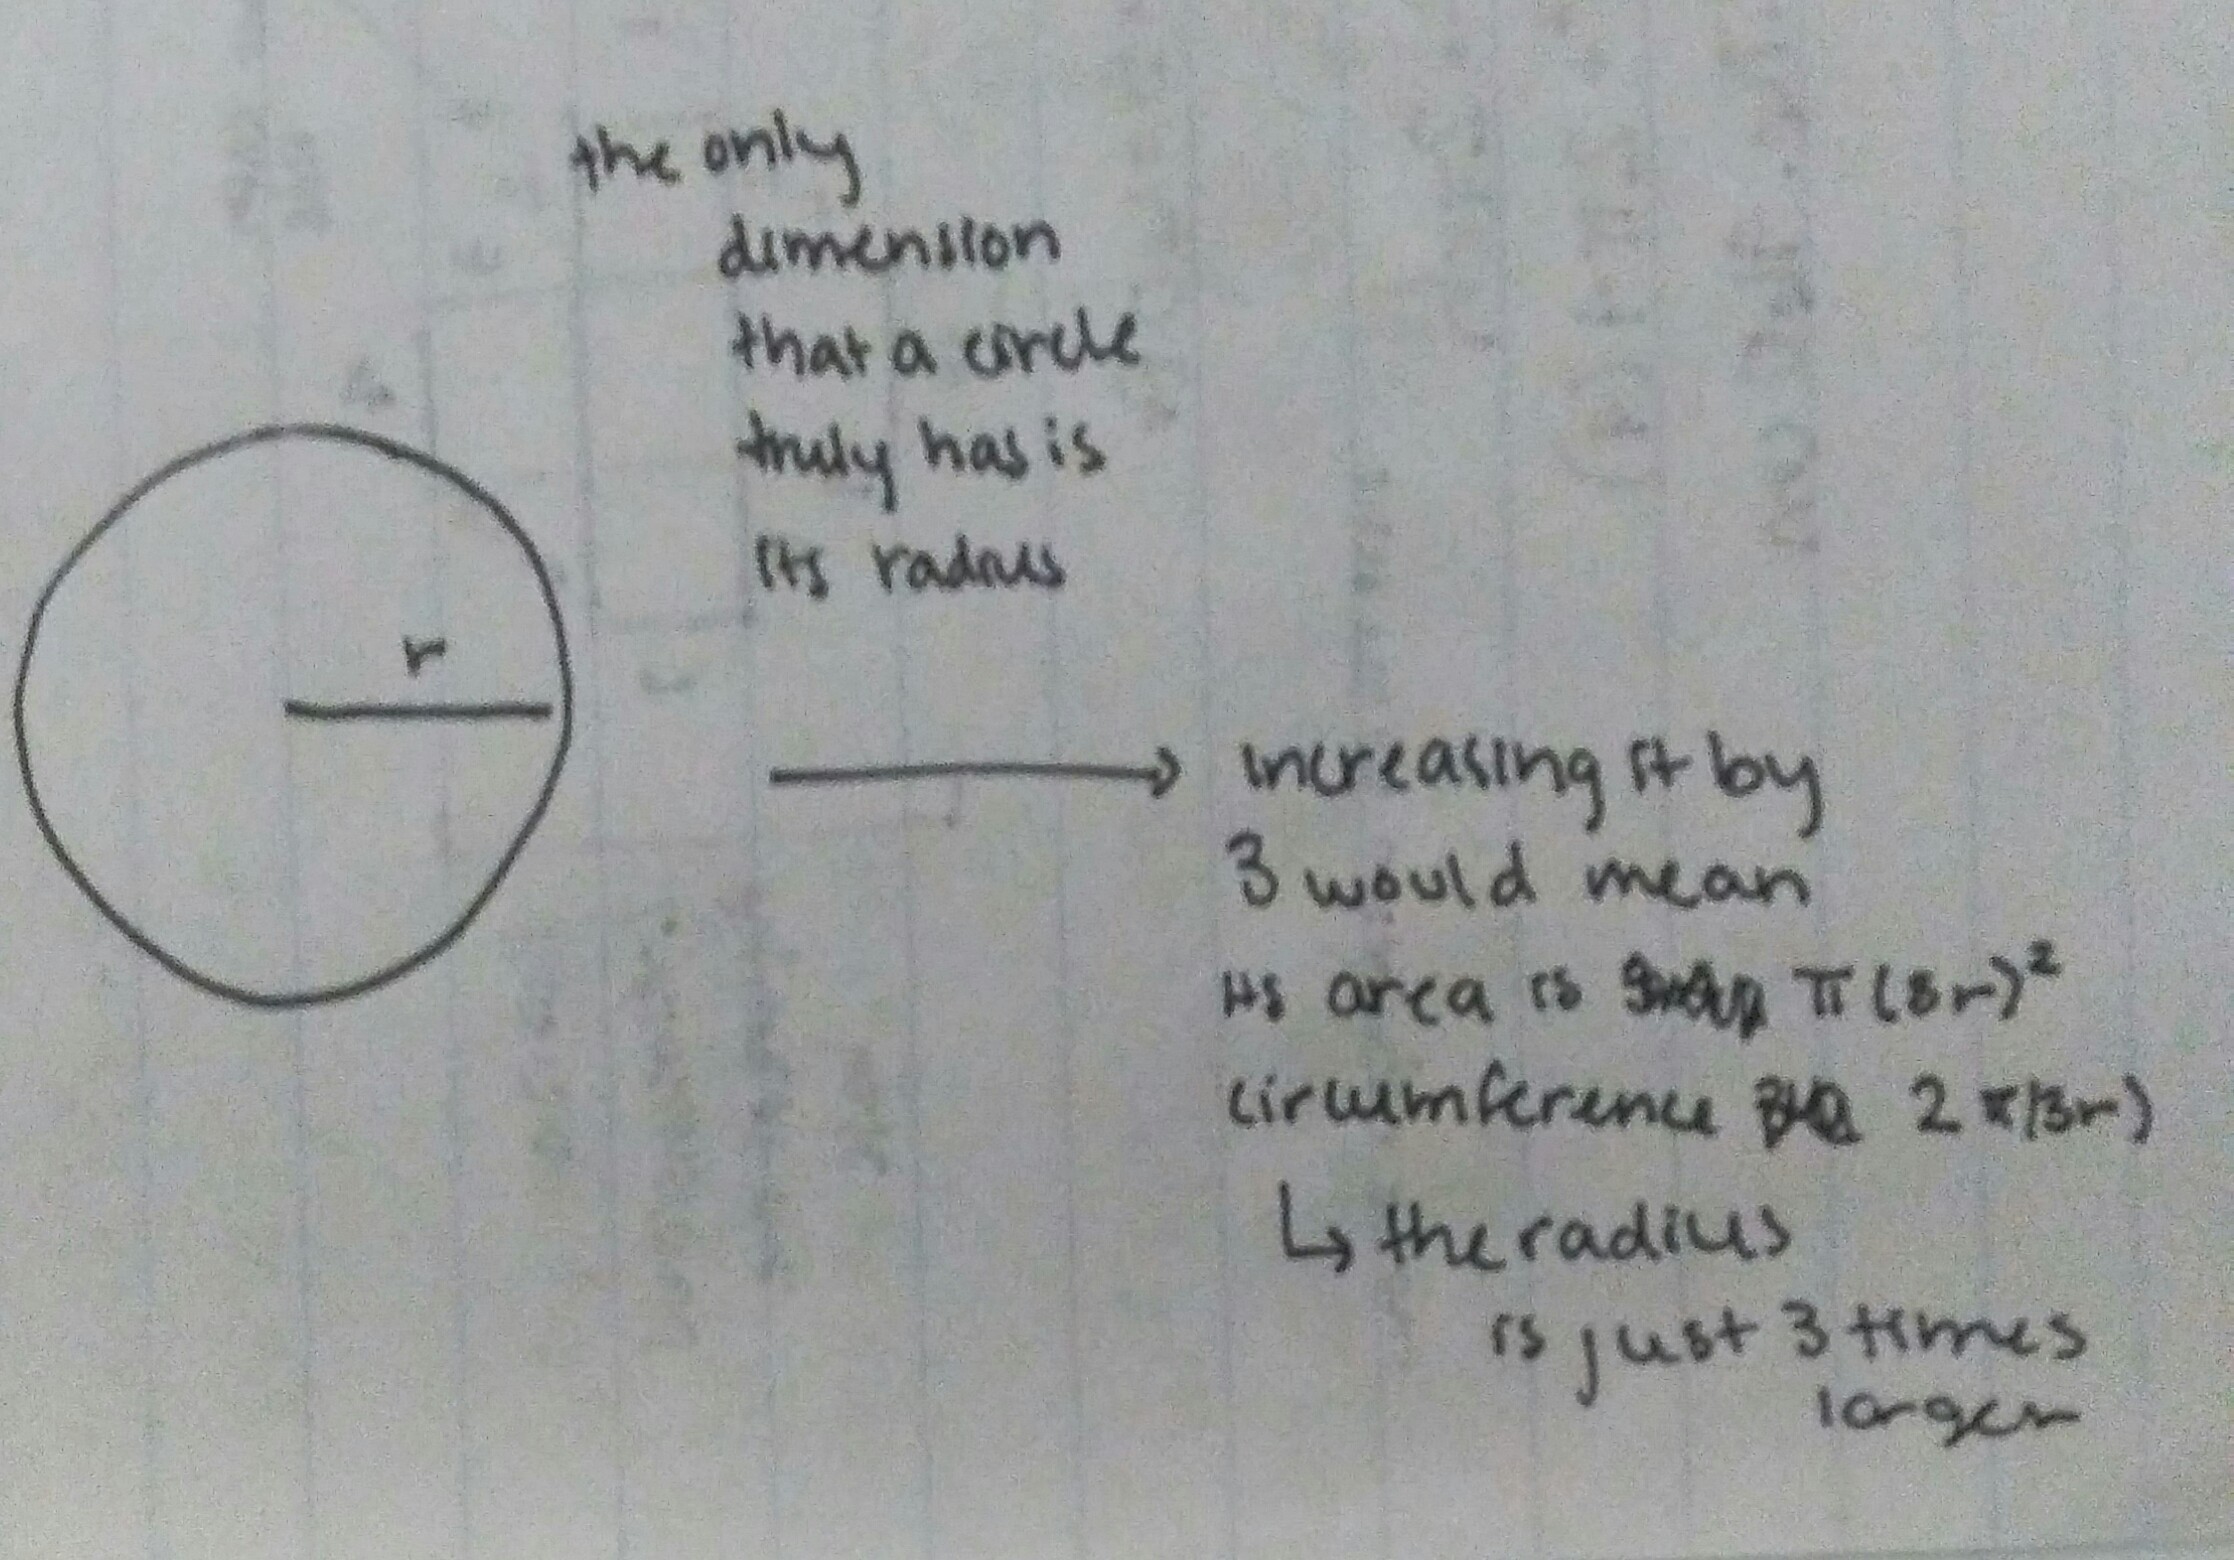 the only
dimension
that a circle
truly has is
its radius
r
increasing it by
3 would mean
its area is π(3r)²
circumference 2π(3r)
↳ the radius
is just 3 times
larger